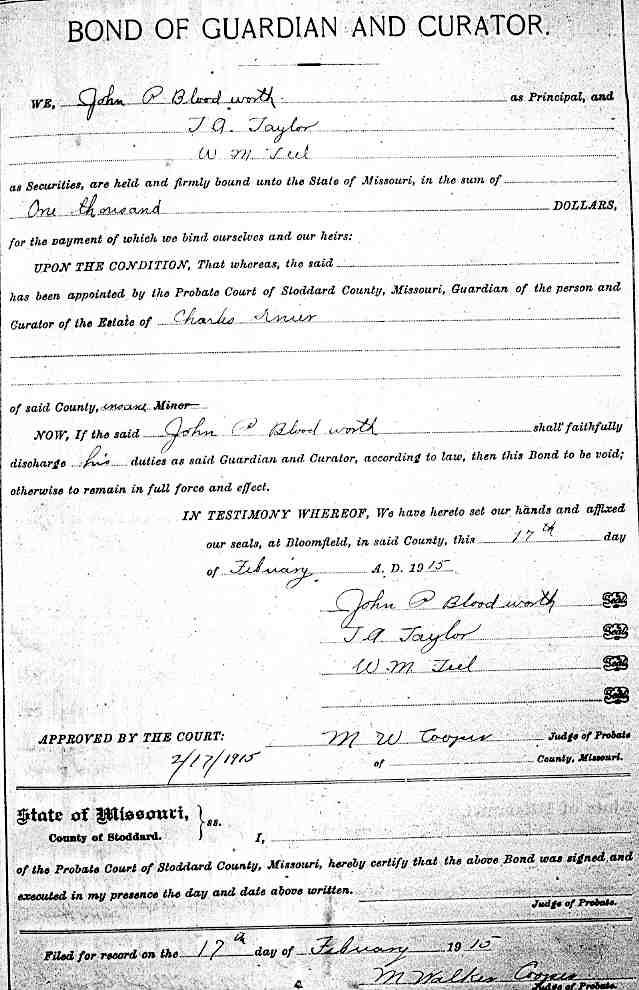 BOND OF GUARDIAN AND CURATOR.
WE, John P Blood worth as Principal, and
T A Taylor
W M Teel
as Securities, are held and firmly bound unto the State of Missouri, in the sum of
One thousand DOLLARS,
for the payment of which we bind ourselves and our heirs:
UPON THE CONDITION, That whereas, the said
has been appointed by the Probate Court of Stoddard County, Missouri, Guardian of the person and
Curator of the Estate of Charles
of said County, insane Minor
NOW, If the said John P Blood worth shall faithfully
discharge his duties as said Guardian and Curator, according to law, then this Bond to be void;
otherwise to remain in full force and effect.
IN TESTIMONY WHEREOF, We have hereto set our hands and affixed
our seals, at Bloomfield, in said County, this 17th day
of February A. D. 1915
John P Blood worth Seal
T A Taylor Seal
W M Teel Seal
Seal
APPROVED BY THE COURT: M W Cooper Judge of Probate
2/17/1915 of County, Missouri.
State of Missouri, } ss.
County of Stoddard. I,
of the Probate Court of Stoddard County, Missouri, hereby certify that the above Bond was signed and
executed in my presence the day and date above written.
Judge of Probate.
Filed for record on the 17th day of February 1915
M Walker Cooper
Judge of Probate.